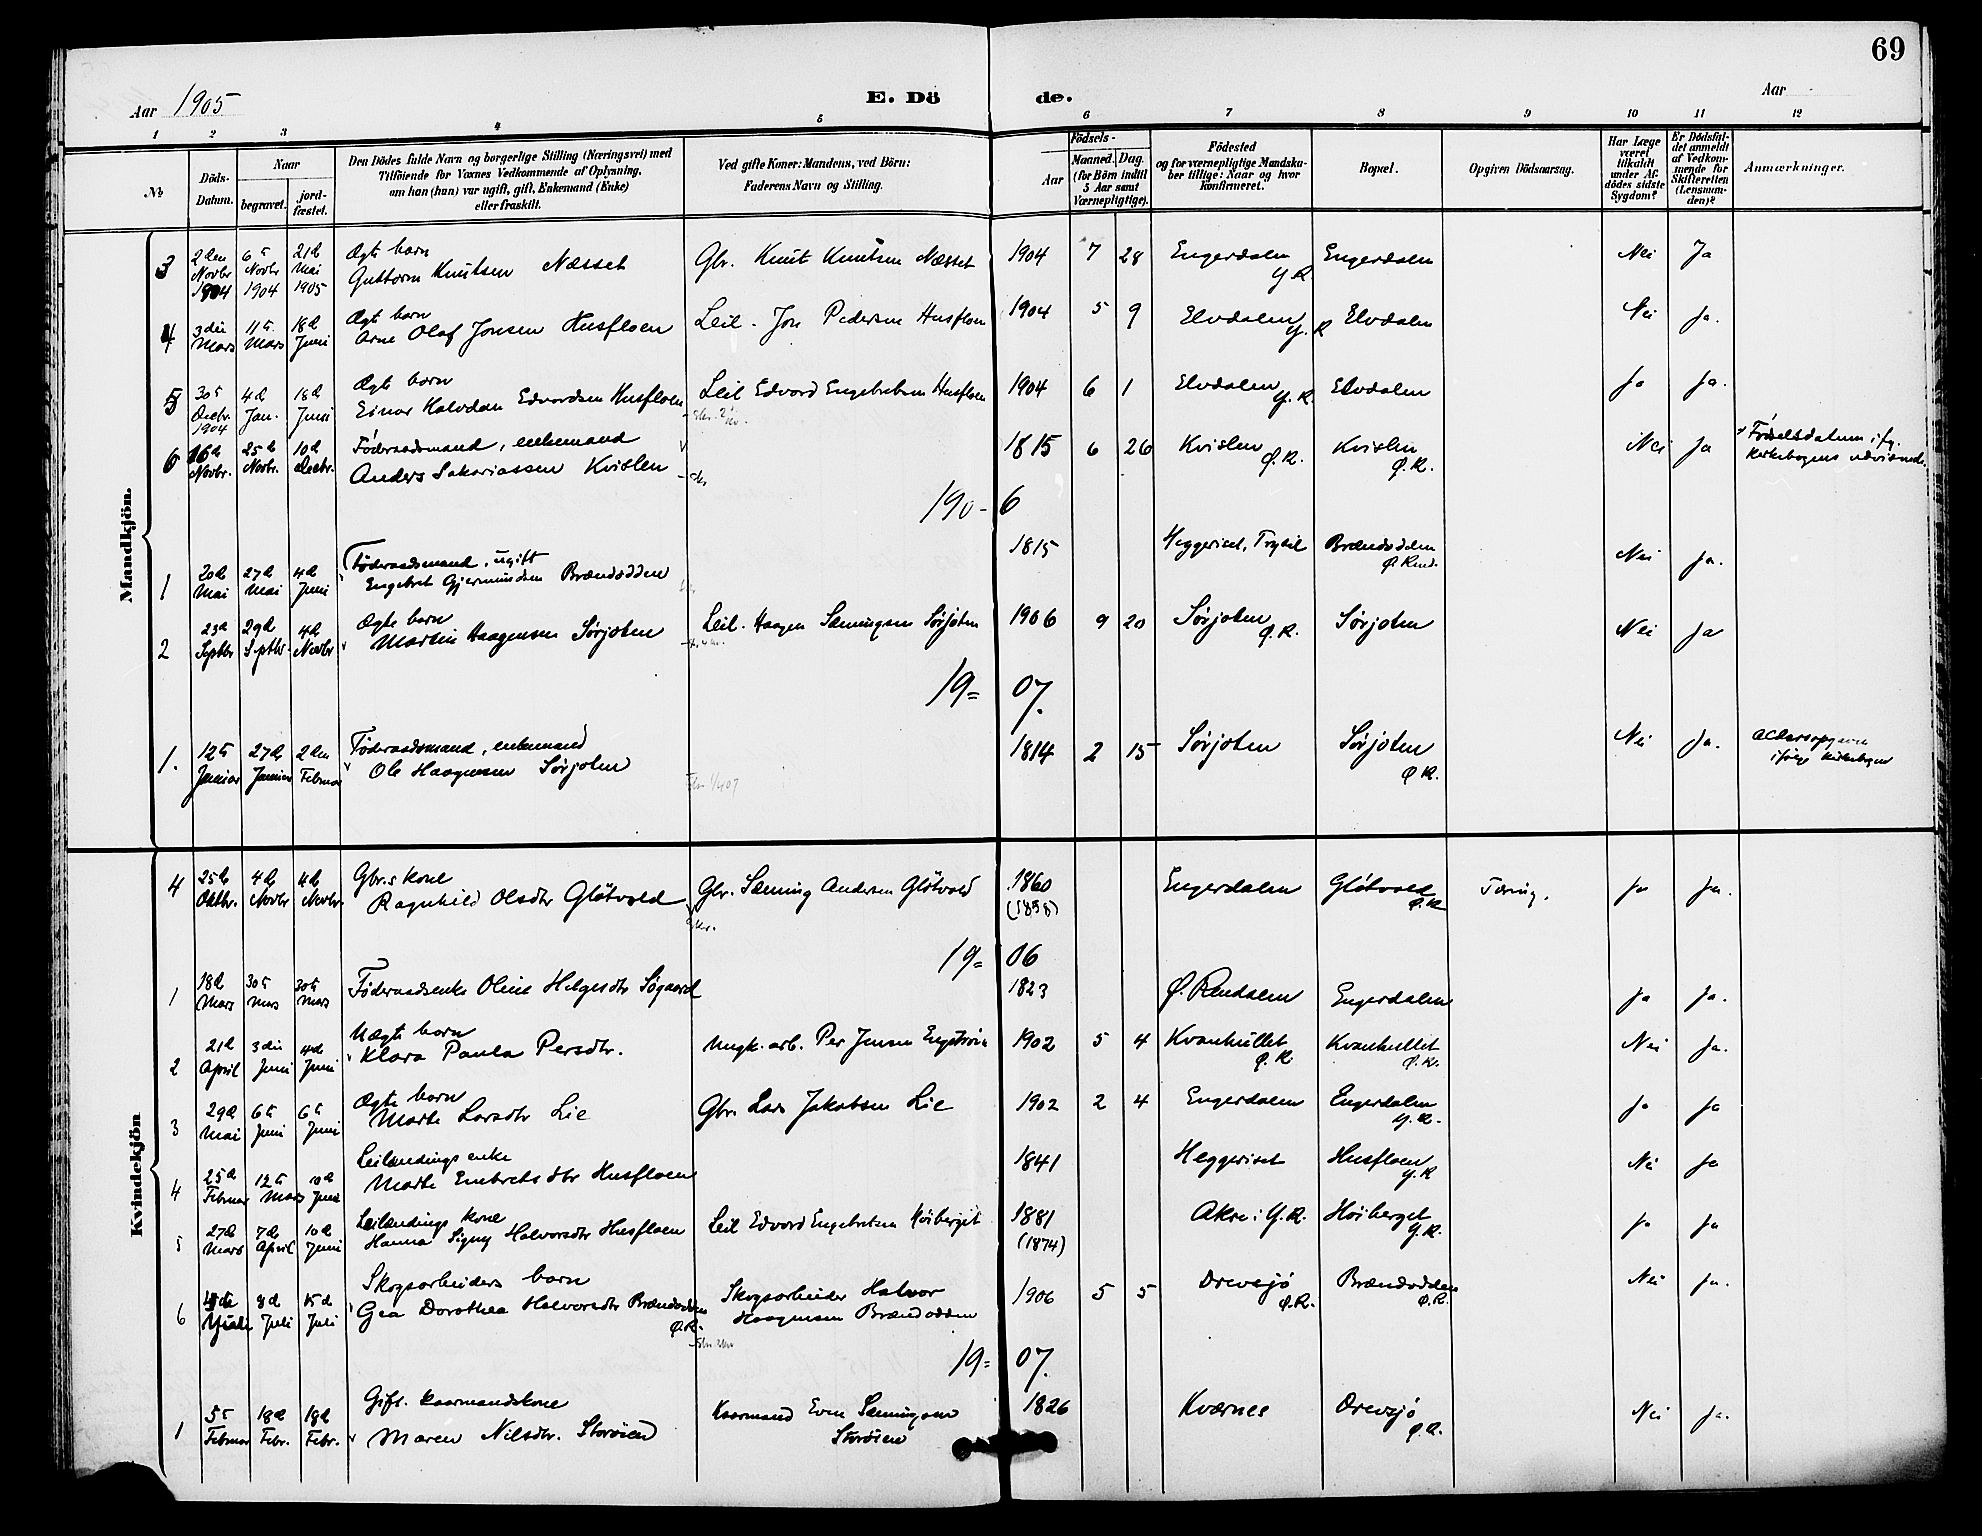 69
Aar 1905
E. Dö de.
Aar
1 2 3 4 5 6 7 8 9 10 11 12
No
Döds-Datum.
Naar
begravet.
jord-fæstet.
Den Dödes fulde Navn og borgerlige Stilling (Næringsvei) med
Tilföiende for Voxnes Vedkommende af Oplysning,
om han (hun) var ugift, gift, Enkemand (Enke)
eller fraskilt.
Ved gifte Koner: Mandens, ved Börn:
Faderens Navn og Stilling.
Födsels-
Aar
Maaned. Dag.
(for Börn indtil
5 Aar samt
Værnepligtige).
Födested
og for værnepligtige Mandska-
ber tillige: Naar og hvor
konfirmeret.
Bopæl.
Opgiven Dödsaarsag.
Har Læge
været
tilkaldt
under Af-
dödes sidste
Sygdom?
Er Dödsfal-
det anmeldt
af Vedkom-
mende for
Skifteretten
(Lensman-
den)?
Anmærkninger.
Mandkjön.
3 2den Novbr 1904 6te Novbr 1904 21de Mai 1905 Ægte barn Guttorm Knutsen Næsset Gbr. Knut Knutsen Næsset 1904 7 28 Engerdalen Y.R. Engerdalen Nei Ja
4 3die Mars 11te Mars 18d Juni Ægte barn Arne Olaf Jonsen Husfloen Leil. Jon Pedersen Husfloen 1904 5 9 Elvdalen Y.R Elvdalen Nei Ja.
5 30te Decbr. 1904 4d Jan. 18d Juni Ægte barn Einar Halvdan Edvardsen Husfloen Leil Edvard Engebretsen Husfloen 1904 6 1 Elvdalen Y.R. Elvdalen Ja Ja.
6 16d Novbr. 25d Novbr. 10d Decbr. Føderaadsmand, enkemand Anders Sakariassen Kvislen 1815 6 26 Kvislen Ø.R. Kvislen Ø.R. Nei Ja Fødselsdatum ifg. kirkebogens udvisende.
190-6
1 20d Mai 27d Mai 4d Juni Føderaadsmand, ugift Engebret Gjermundsen Brændodden 1815 Heggeriset, Trysil Brændodden Ø. Rend. Nei Ja.
2 23d Septbr 29d Septbr. 4d Novbr Ægte barn Martin Haagensen Sørjoten Leil. Haagen Sæmingsen Sørjoten 1906 9 20 Sørjoten Ø.R. Sørjoten Nei Ja
19=07.
1. 12te Januar 27d Januar 2den Februar Føderaadsmand, enkemand Ole Haagensen Sørjoten 1814 2 15 Sørjoten Sørjoten Ø R. Nei Ja. Aldersopgave ifølge kirkebogen
Kvindekjön
4 25d Oktbr. 4d Novbr 4d Novbr. Gbr.s kone Ragnhild Olsdtr Gløtvold Gbr. Sæming Andersen Gløtvold 1860 (1858) Engerdalen Gløtvold Ø.R Tæring. Ja Ja.
19=06
1 18d Mars 30te Mars 30te Mars Føderaadsenke Oline Helgesdtr Søgaard 1823 Ø. Rendalen Engerdalen Ja Ja.
2 21d April 3die Juni 4d Juni Uægte barn Klara Paula Persdtr. Ungk. arb. Per Jensen 1902 5 4 Kvanhullet Ø.R Kvanhullet Ø.R. Nei Ja.
3 29d Mai 6te Juni 6te Juni Ægte barn Marte Larsdtr Lie Gbr. Lars Jakobsen Lie 1902 2 4 Engerdalen Engerdalen Y.R. Ja Ja
4 25d Februar 12te Mars 10d Juni Leilændings enke Marte Embretsdtr Husfloen 1841 Heggeriset Husfloen Y.R Nei Ja
5 27d Mars 7d April 10d Juni Leilændings kone Hanna Signy Halvorsdtr Husfloen Leil Edvard Engebretsen Høiberget 1881 (1874) Akre i Y.R. Høiberget Y.R. Ja Ja
6 Juli 8d Juli 15d Juli Skogsarbeiders barn Gea Dorothea Halvorsdtr Brændodden Ø.R. Skogsarbeider Halvor Haagensen Brændodden 1906 5 5 Drevsjø Ø.R. Brændodden Ø.R. Nei Ja.
19=07.
1 5te Februar 18d Febr. 18d Febr. Gift. kaarmandskone Maren Nilsdtr. Storøien Kaarmand Even Sæmingsen Storøien 1826 Kværnes Drevsjø Ø.R. Nei Ja.